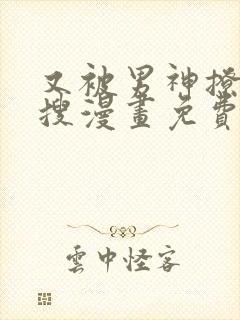 又被男神撩
搜漫畫免費
雲中怪客